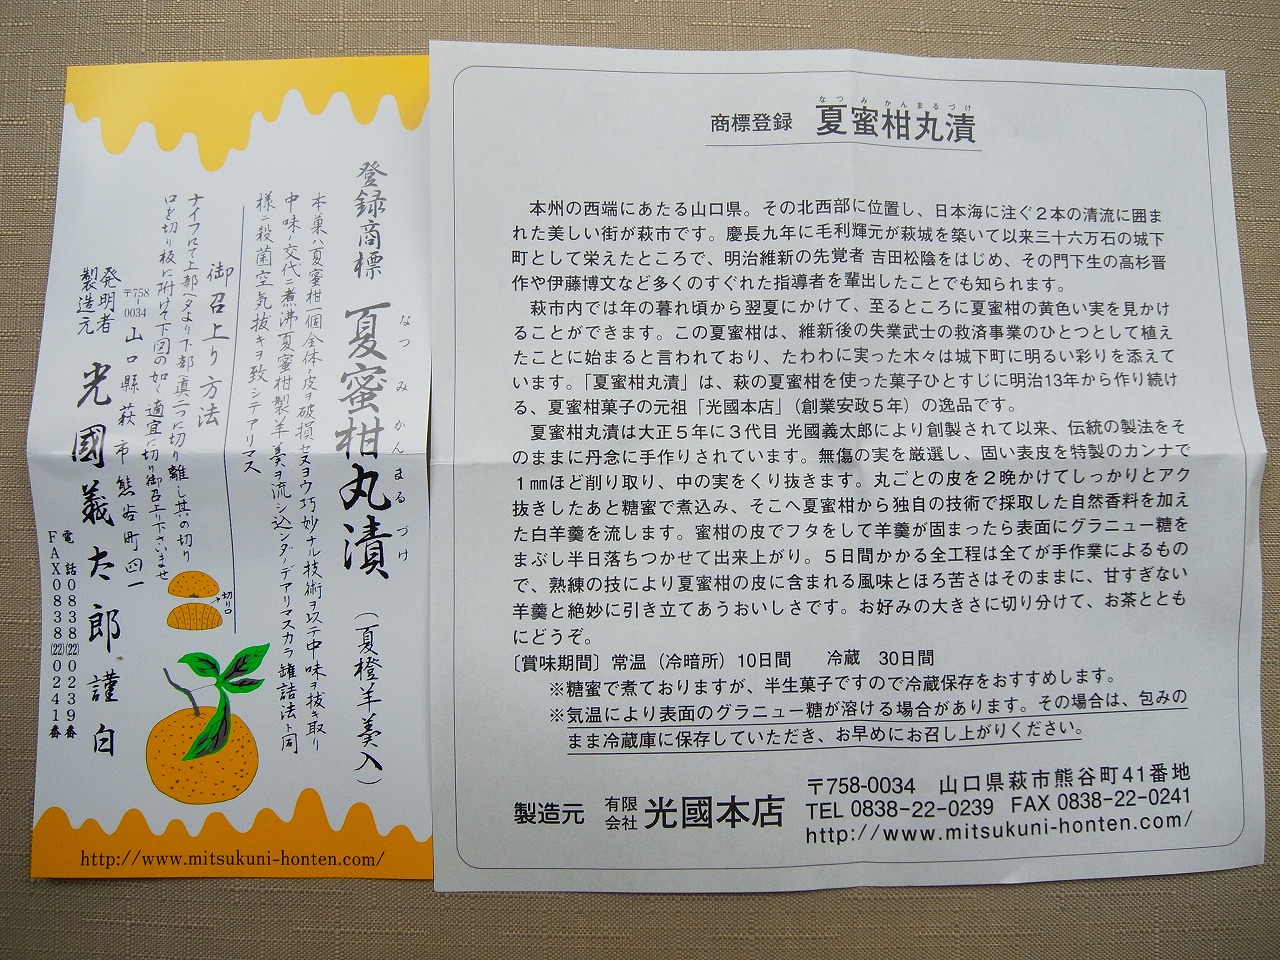 登録商標 夏蜜柑丸漬 (夏橙羊羹入)
なつみかんまるづけ
本菓ハ夏蜜柑一個全体ノ皮ヲ破損セヌヨウ巧妙ナル技術ヲ以テ中味ヲ抜き取り
中味ノ交代ニ煮沸夏蜜柑製羊羹ヲ流シ込ンダノデアリマスカラ罐詰法ト同
様ニ殺菌空気抜キヲ致シテアリマス
御召上り方法
ナイフにて上部(ヘタ)より下部ノ真二つに切り離し其の切り
口を切り板に附けて下図の如く適宜に切り御召上り下さいませ
切り口
〒758-0034 山口縣萩市熊谷町四一
発明者
製造元 光國義太郎 謹白
電話0838(22)0239番
FAX0838(22)0241番
http://www.mitsukuni-honten.com/
なつみかんまるづけ
商標登録 夏蜜柑丸漬
本州の西端にあたる山口県。その北西部に位置し、日本海に注ぐ2本の清流に囲ま
れた美しい街が萩市です。慶長九年に毛利輝元が萩城を築いて以来三十六万石の城下
町として栄えたところで、明治維新の先覚者 吉田松陰をはじめ、その門下生の高杉晋
作や伊藤博文など多くのすぐれた指導者を輩出したことでも知られます。
萩市内では年の暮れ頃から翌夏にかけて、至るところに夏蜜柑の黄色い実を見かけ
ることができます。この夏蜜柑は、維新後の失業武士の救済事業のひとつとして植え
たことに始まると言われており、たわわに実った木々は城下町に明るい彩りを添えて
います。「夏蜜柑丸漬」は、萩の夏蜜柑を使った菓子ひとすじに明治13年から作り続け
る、夏蜜柑菓子の元祖「光國本店」(創業安政5年)の逸品です。
夏蜜柑丸漬は大正5年に3代目 光國義太郎により創製されて以来、伝統の製法をそ
のままに丹念に手作りされています。無傷の実を厳選し、固い表皮を特製のカンナで
1㎜ほど削り取り、中の実をくり抜きます。丸ごとの皮を2晩かけてしっかりとアク
抜きしたあと糖蜜で煮込み、そこへ夏蜜柑から独自の技術で採取した自然香料を加え
た白羊羹を流します。蜜柑の皮でフタをして羊羹が固まったら表面にグラニュー糖を
まぶし半日落ちつかせて出来上がり。5日間かかる全工程は全てが手作業によるもの
で、熟練の技により夏蜜柑の皮に含まれる風味とほろ苦さはそのままに、甘すぎない
羊羹と絶妙に引き立てあうおいしさです。お好みの大きさに切り分けて、お茶ととも
にどうぞ。
〔賞味期間〕常温(冷暗所)10日間 冷蔵 30日間
※糖蜜で煮ておりますが、半生菓子ですので冷蔵保存をおすすめします。
※気温により表面のグラニュー糖が溶ける場合があります。その場合は、包みの
まま冷蔵庫に保存していただき、お早めにお召し上がりください。
製造元 有限会社 光國本店
〒758-0034 山口県萩市熊谷町41番地
TEL 0838-22-0239 FAX 0838-22-0241
http://www.mitsukuni-honten.com/